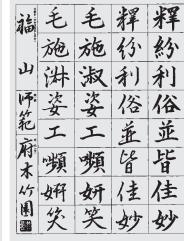 釋紛利俗並皆佳妙
釋紛利俗並皆佳妙
毛施淑姿工嚬妍笑
毛施淑姿工嚬妍笑
福山師範府木竹